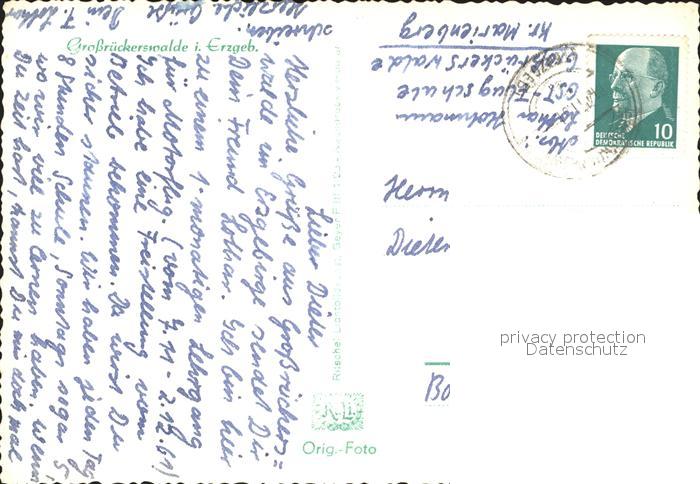 Großrückerswalde i. Erzgeb.
Lieber Dieter
Herzliche Grüße aus Großrückers=
walde im Erzgebirge sendet Dir
Dein Freund Lothar. Ich bin hier
zu einem 1-monatigen Lehrgang
für Motorflug. (vom 7.11 - 2.12.61)
Ich habe eine Freistellung vom
Betrieb bekommen. Da wirst Du
sicher staunen. Wir haben jeden Tag
8 Stunden Schule, Sonntags sogar 5
wo wir viel zu lernen haben. Wenn
Du Zeit hast, kannst Du mir doch mal
schreiben.
Herzliche Grüße Dein F. Lothar
Abs.: Lothar Hohmann
GST Flugschule
Großrückerswalde
Kr. Marienberg
DEUTSCHE
DEMOKRATISCHE REPUBLIK
10
Herrn
Dieter
Bo
Orig.-Foto
privacy protection
Datenschutz